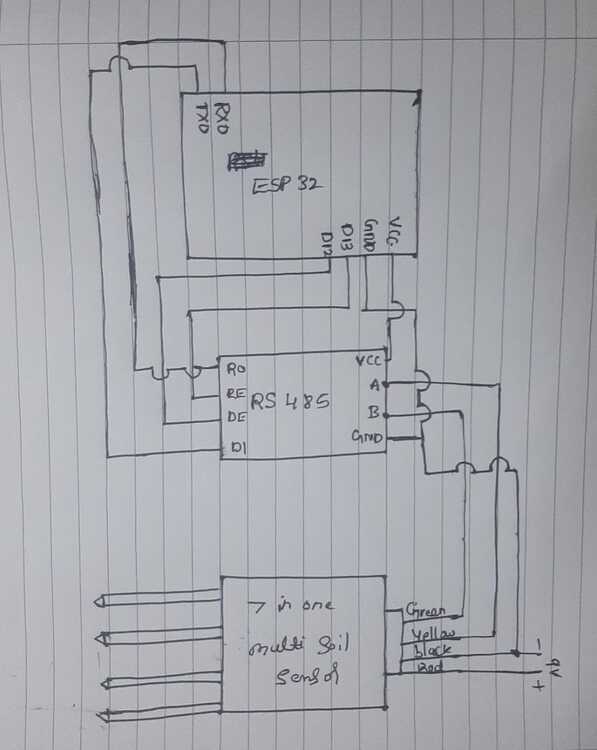 TXD
RXD
ESP 32
D12
D13
GND
VCC
RO
RE
DE
DI
RS 485
VCC
A
B
GND
7 in one
multi Soil
Sensor
Green
Yellow
black
Red
-
9V
+